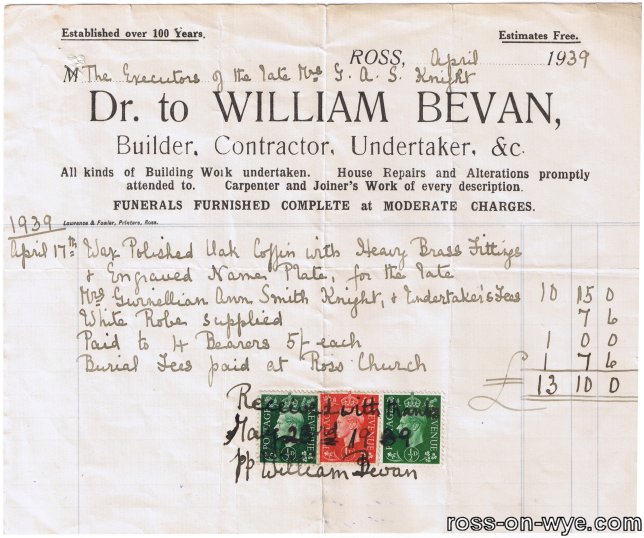 Established over 100 Years.
Estimates Free.
ROSS, April 1939
M The Executors of the late Mrs G. A. S. Knight
Dr. to WILLIAM BEVAN,
Builder, Contractor, Undertaker, &c.
All kinds of Building Work undertaken. House Repairs and Alterations promptly
attended to. Carpenter and Joiner's Work of every description.
FUNERALS FURNISHED COMPLETE at MODERATE CHARGES.
1939
Lawrence & Fowler, Printers, Ross.
April 17th Wax Polished Oak Coffin with Heavy Brass Fittings
& Engraved Name Plate, for the late
Mrs Gwnellian Ann Smith Knight, & Undertaker's Fees 10 15 0
White Robe supplied 7 6
Paid to 4 Bearers 5/- each 1 0 0
Burial Fees paid at Ross Church 1 7 6
£ 13 10 0
Received with thanks
May 23rd 1939
pp William Bevan
POSTAGE REVENUE
½D
POSTAGE REVENUE
1D
POSTAGE REVENUE
½D
ross-on-wye.com